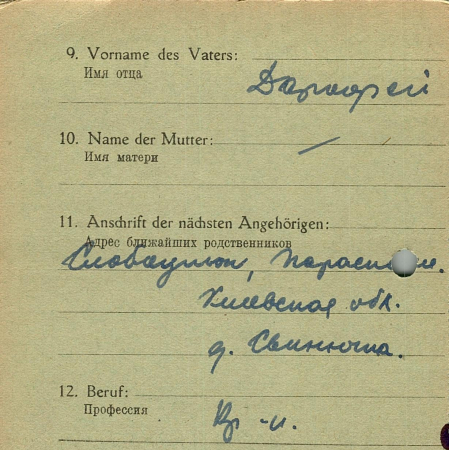 9. Vorname des Vaters:
Имя отца
10. Name der Mutter:
Имя матери
—
11. Anschrift der nächsten Angehörigen:
Адрес ближайших родственников
Киевская обл.
д. Свинюча.
12. Beruf:
Профессия
Кр-н.